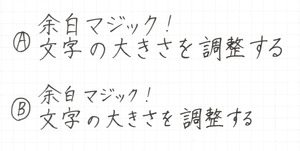 Ⓐ 余白マジック!
文字の大きさを調整する
Ⓑ 余白マジック!
文字の大きさを調整する